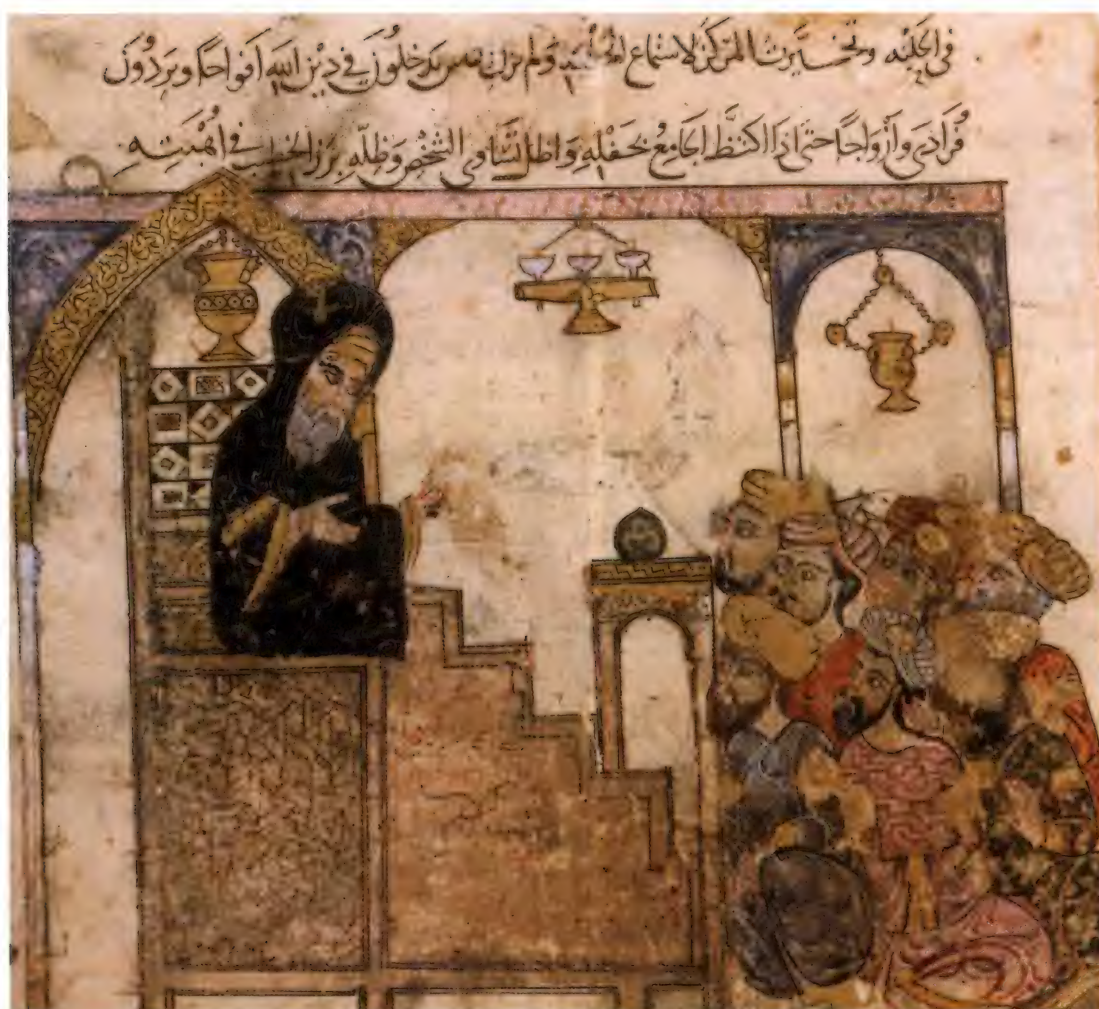 في الحلبه وتخيرت المركز لاستماع الخطبه ولم يزل يدخلون في دين الله افواجا ويردون
فرادى وازواجا حتى اذا اكتظ الجامع بحفله واظل تساوي الشخص وظله برز الخطيب في اهبته